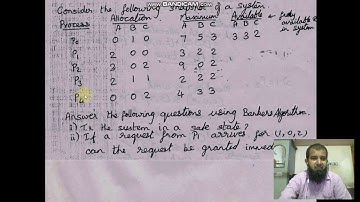 BANDICAM.COM
Consider the following snapshot of a system
Process Allocation Maximum Available → free available in system
A B C A B C A B C
P0 0 1 0 7 5 3 3 3 2
P1 2 0 0 3 2 2
P2 3 0 2 9 0 2
P3 2 1 1 2 2 2
P4 0 0 2 4 3 3
Answer the following questions using Bankers Algorithm.
i) Is the system in a safe state?
ii) If a request from P1 arrives for (1,0,2)
can the request be granted